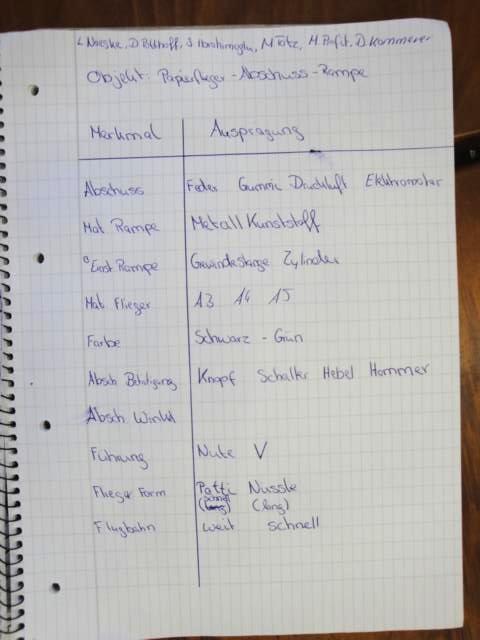 Objekt: Papierflieger-Abschuss-Rampe
Merkmal Ausprägung
Abschuss Feder Gummi Druckluft Elektromotor
Mat. Rampe Metall Kunststoff
Einst Rampe Gewindestange Zylinder
Mat. Flieger A3 A4 A5
Farbe Schwarz - Grün
Absch Betätigung Knopf Schalter Hebel Hammer
Absch. Winkel
Führung Nute V
Flieger Form Patti Nussle
(lang)
Flugbahn weit schnell